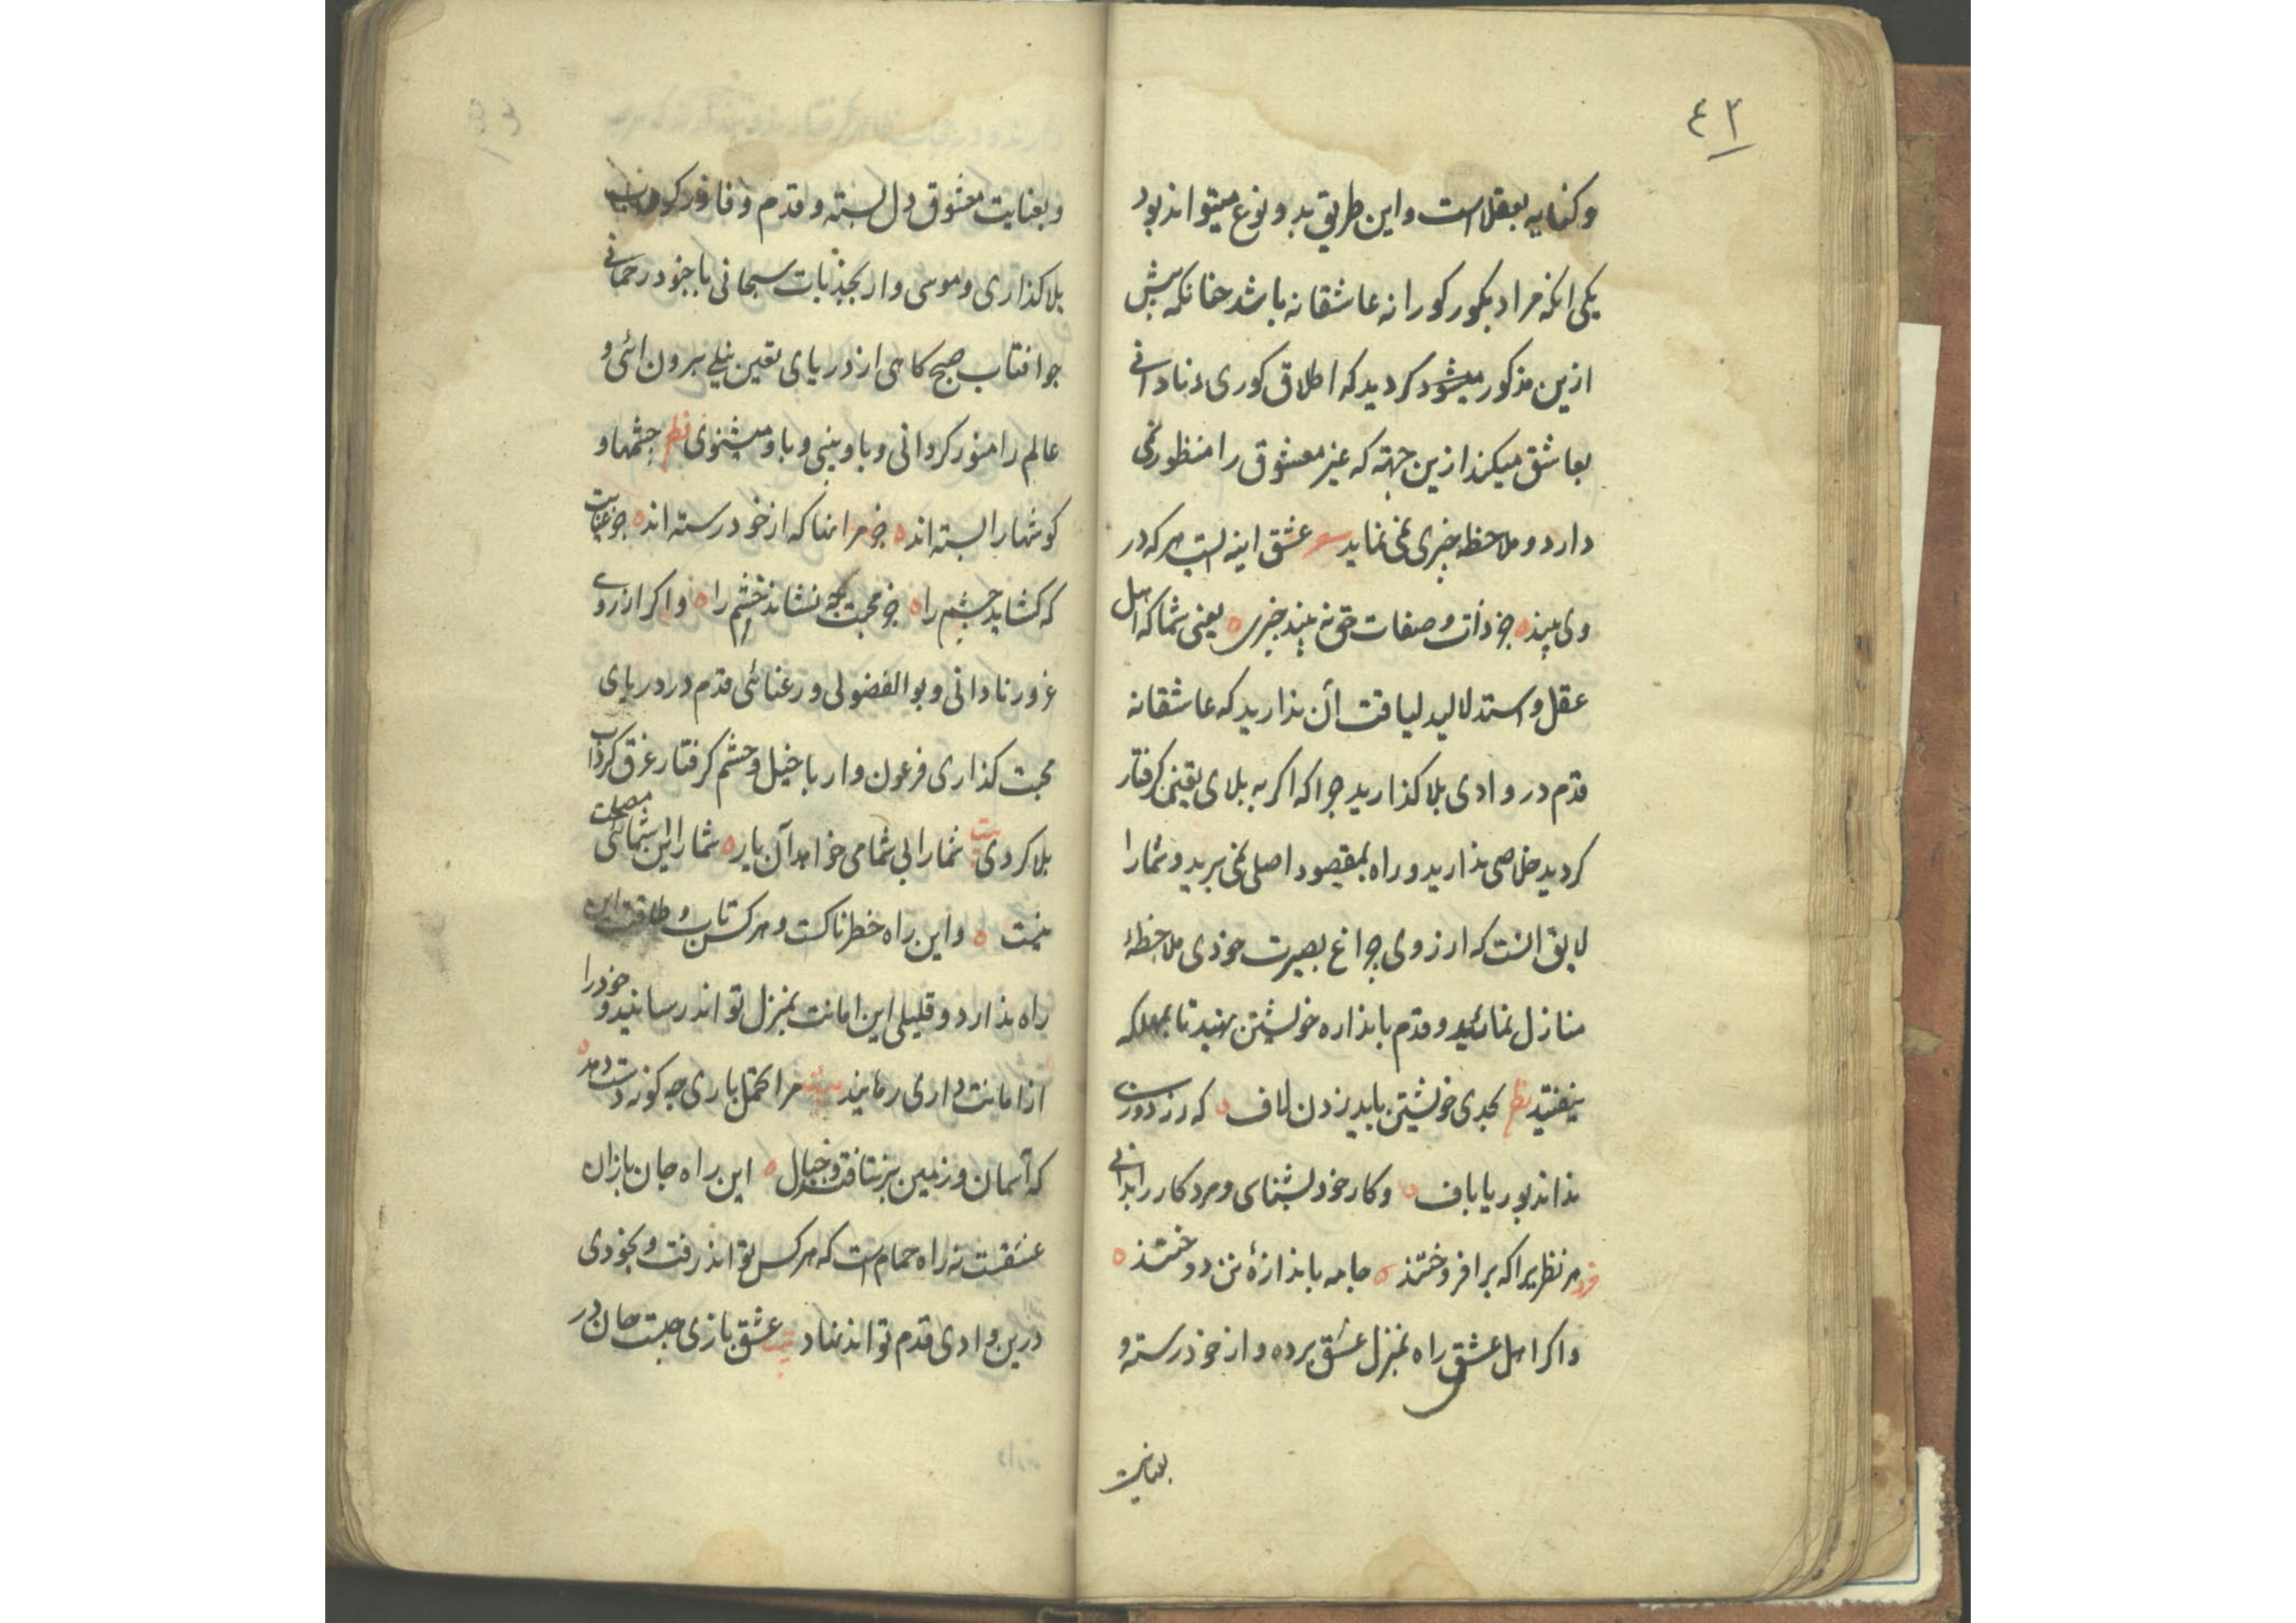 ٤٢
و کنایه بعقل است و این طریق بدو نوع میتواند بود
یکی انکه مراد بکور کورانه عاشقانه باشد جنانکه بیش
ازین مذکور میشود کردید که اطلاق کوری و نادانی
بعاشق میکند ازین جهته که غیر معشوق را منظور نمی
دارد و ملاحظه جیزی نمی نماید عشق اینه است هر که در
وی بیند جز ذات و صفات حق نه بیند جیزی یعنی شما که اهل
عقل و استدلالید لیاقت آن ندارید که عاشقانه
قدم در وادی بلا کذارید جرا که اکر به بلای یقینی کرفتار
کردید خلاصی ندارید و راه بمقصود اصلی نمی برید و شما را
لایق انست که از روی جراغ بصیرت خودی ملاحظهٔ
منازل نمائید و قدم باندازه خویشتن نهید تا بمهلکه
نیفتید نظم بحدی خویشتن باید زدن لاف که زردوزی
نداند بوریا باف و کار خود بشناسی و مرد کار را بدانی
فرد هر نظر یرا که بر افروختند جامه باندازهٔ تن دوختند
و اکر اهل عشق راه بمنزل عشق برده و از خود رسته و
بعنایت
و بعنایت معشوق دل بسته و قدم وفا در کوی
بلا کذاری و موسی وار بجذبات سبحانی با جنود رحمانی
جو افتاب صبح کاهی از دریای یقین نیلی بیرون ائی و
عالم را منور کردانی و با و بینی و با و میشنوی نظم جشمها و
کوشها را بسته اند جز مر انها که از خود رسته اند جز عنایت
که کشاید جشم را جز محبت که نشاند خشم را و اکر از روی
غرور نادانی و بو الفضولی و رعنائی قدم در دریای
محبت کذاری فرعون وار با خیل و حشم کرفتار غرق کرداب
بلا کردی بیت شما را بی شما می خواهد آن یار شما را این شمائی مصلحت
نیست و این راه خطرناکست و هر کس تاب و طاقت این
راه ندارد و قلیلی این امانت بمنزل تواند رسانید و خود را
از امانت داری رهانید مرا تحمل باری جه کونه دست دهد
که آسمان و زمین بر نتافتند و جبال این راه جان بازان
عشقست نه راه حمام است که هر کس تواند رفت و بخودی
درین وادی قدم تواند نهاد بیت عشق بازی جیست جان در